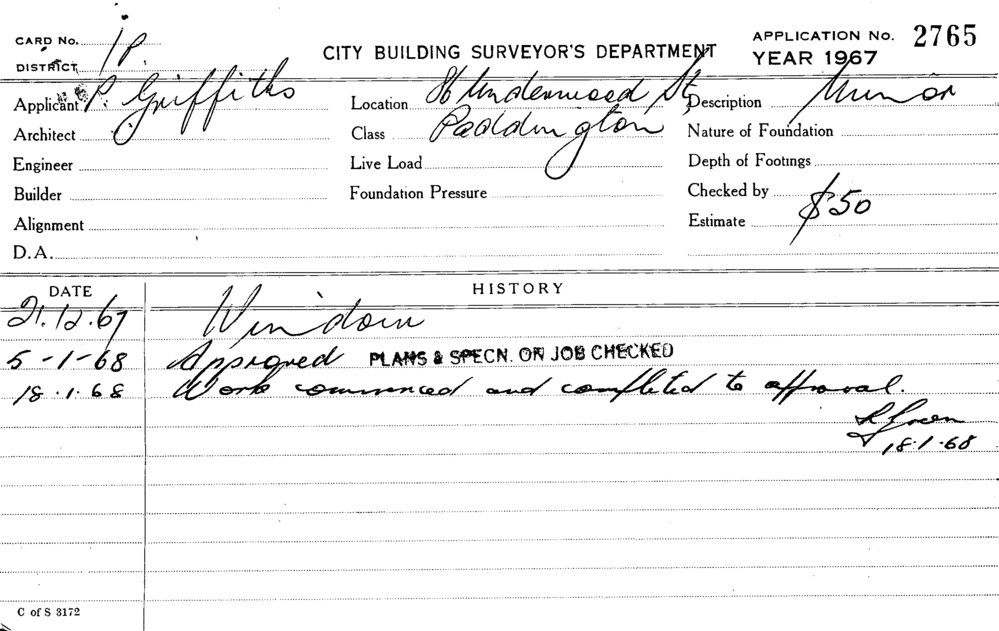 CARD No. 1P. CITY BUILDING SURVEYOR'S DEPARTMENT APPLICATION No. 2765
DISTRICT YEAR 1967
Applicant P. Griffiths Location 86 Underwood St, Description Minor
Architect Class Paddington Nature of Foundation
Engineer Live Load Depth of Footings
Builder Foundation Pressure Checked by
Alignment Estimate $50
D.A.
DATE HISTORY
21.12.67 Window
5-1-68 Approved PLANS & SPECN. ON JOB CHECKED
18.1.68 Work commenced and completed to approval.
Green
18.1.68
C of S 3172